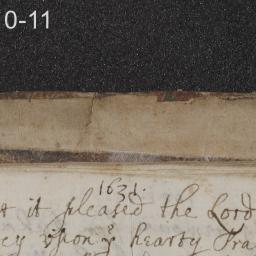 0-11
1631.
it pleased the Lord
upon ye hearty